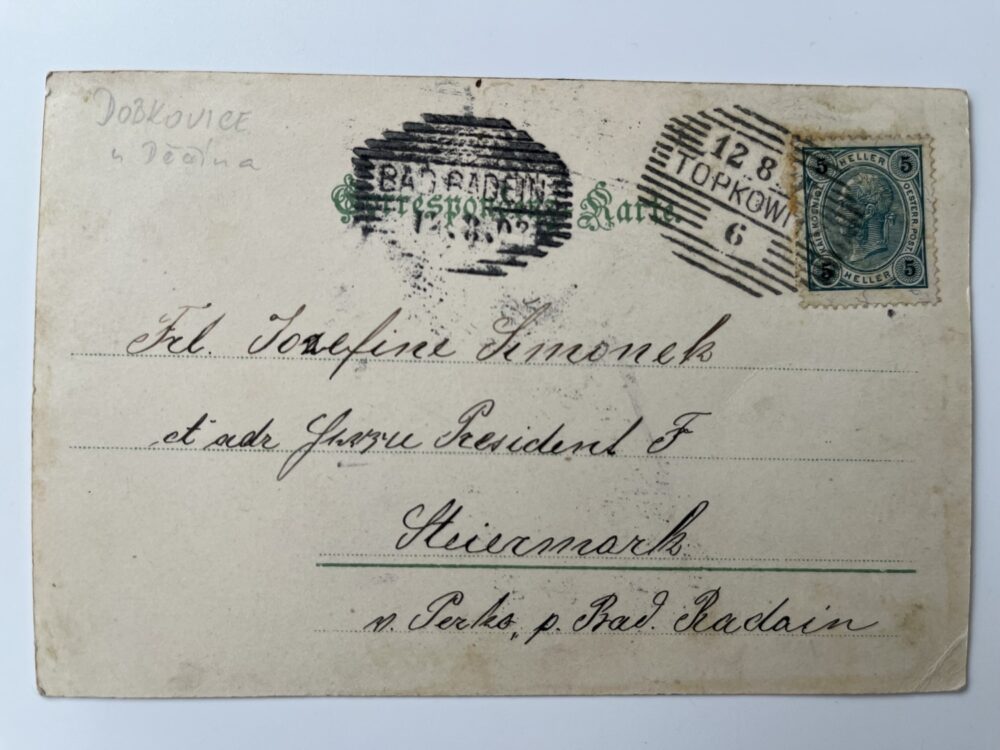 DOBKOVICE
u Děčína
BAD RADEIN
Correspondenz-Karte.
12 8
TOPKOWI
6
5 HELLER 5
KAIS. KOENIGL.
OESTERR. POST.
5 HELLER 5
Frl. Jozefine Simonek
et adr Herru President F
Steiermark
v. Perko, p. Bad. Radain